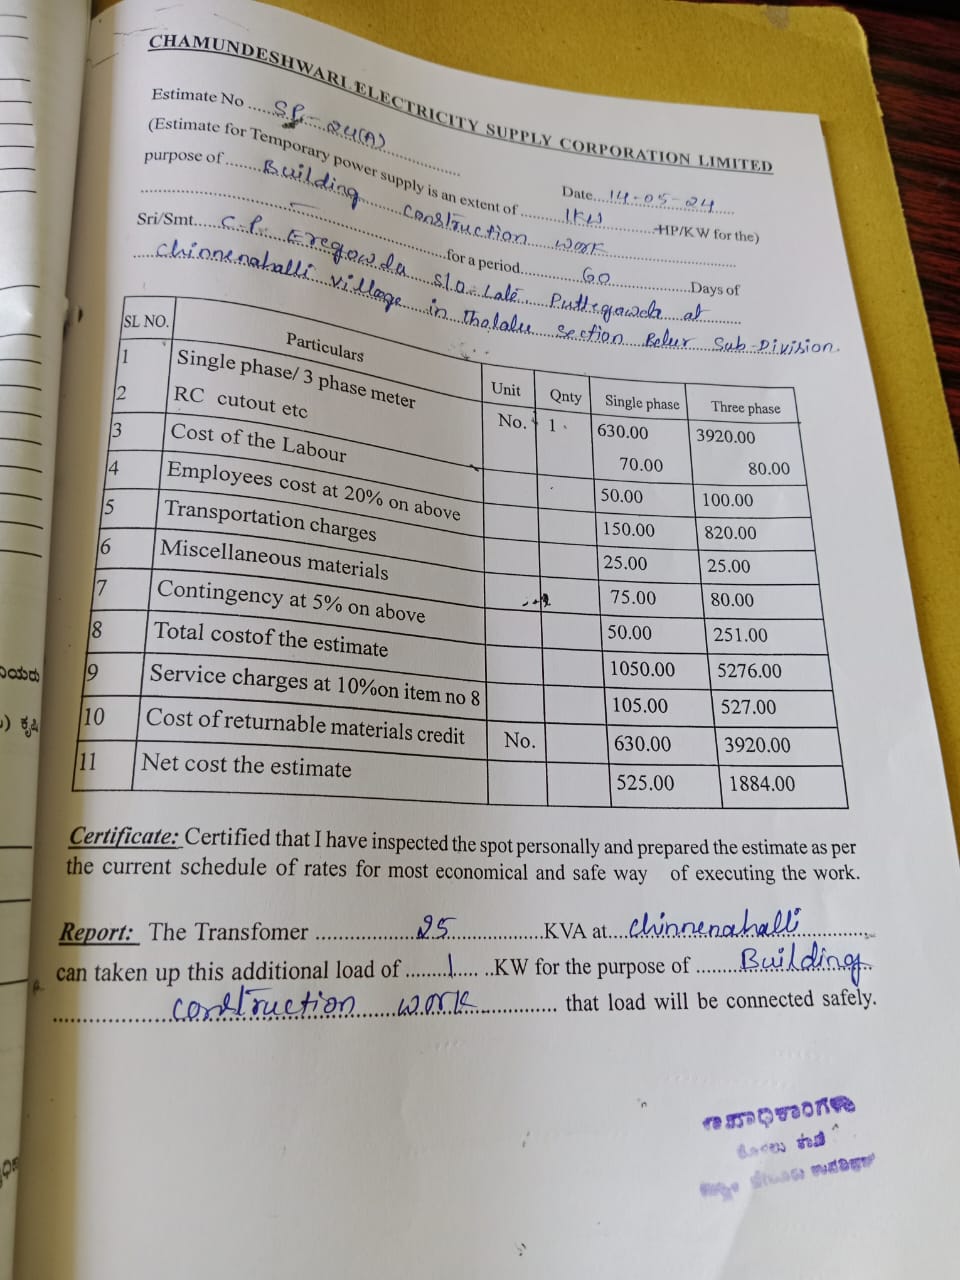 CHAMUNDESHWARI ELECTRICITY SUPPLY CORPORATION LIMITED
Estimate No .....SP-24(A)................
Date....14-05-24.....
(Estimate for Temporary power supply is an extent of ..........1KW..............HP/KW for the)
purpose of........Building construction work.......
.......for a period............60................Days of
Sri/Smt.....C.P. Eregowda S/o. Late. Puttegowda at
....Chinnenahalli village in Thalalu section Belur Sub-Division.
SL NO. Particulars Unit Qnty Single phase Three phase
1 Single phase/ 3 phase meter No. 1 630.00 3920.00
2 RC cutout etc 70.00 80.00
3 Cost of the Labour 50.00 100.00
4 Employees cost at 20% on above 150.00 820.00
5 Transportation charges 25.00 25.00
6 Miscellaneous materials 75.00 80.00
7 Contingency at 5% on above 50.00 251.00
8 Total costof the estimate 1050.00 5276.00
9 Service charges at 10%on item no 8 105.00 527.00
10 Cost of returnable materials credit No. 630.00 3920.00
11 Net cost the estimate 525.00 1884.00
Certificate: Certified that I have inspected the spot personally and prepared the estimate as per
the current schedule of rates for most economical and safe way of executing the work.
Report: The Transfomer ................25..............KVA at....Chinnenahalli............
can taken up this additional load of ........1..... ..KW for the purpose of .......Building..
...................construction......work............. that load will be connected safely.